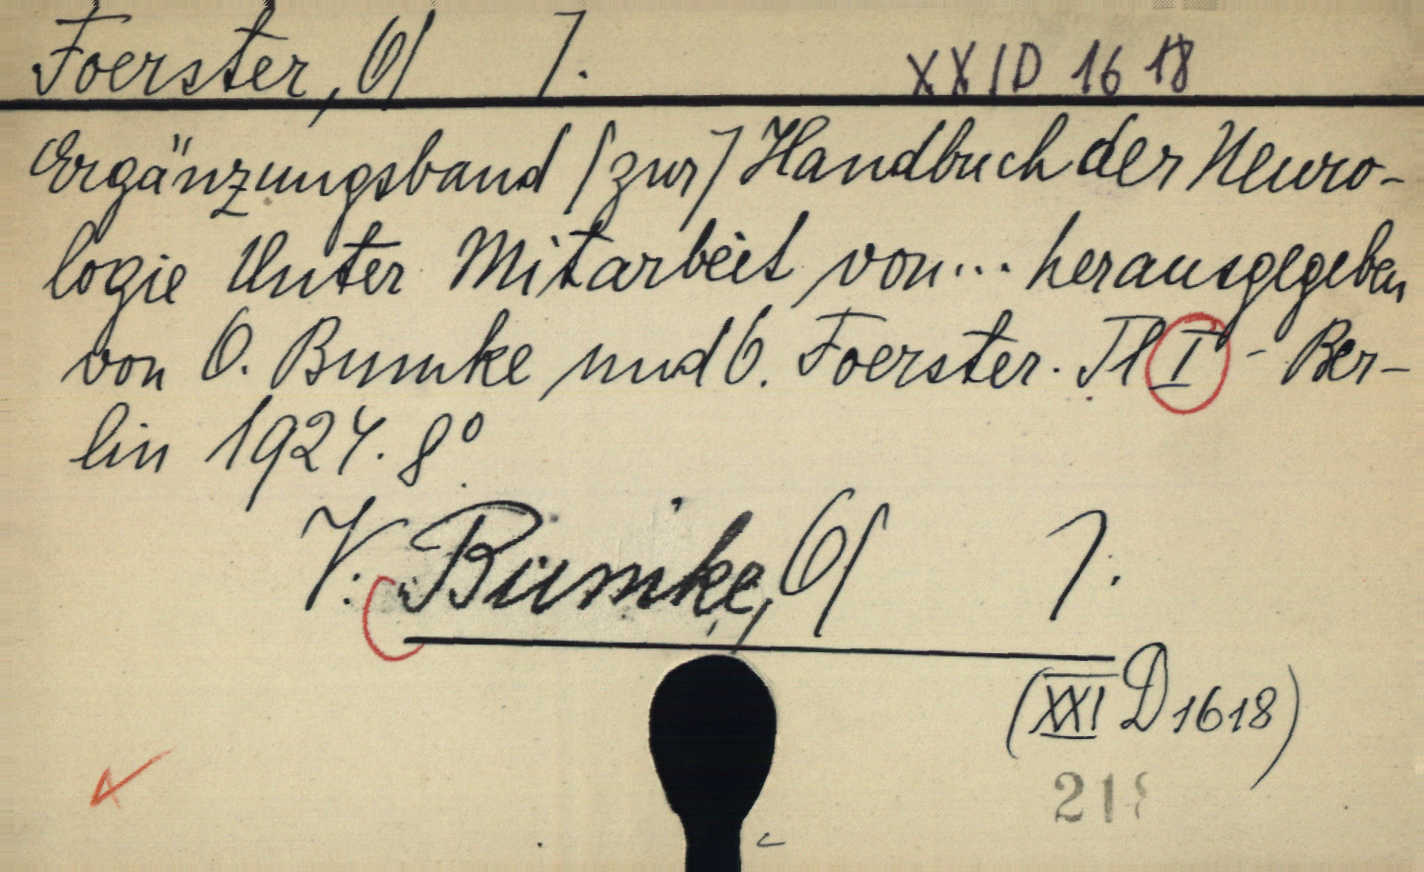 Foerster, O[ ]. XXI D 1618
Ergänzungsband [zur] Handbuch der Neuro-
logie Unter Mitarbeit von... herausgegeben
von O. Bumke und O. Foerster. Tl I - Ber-
lin 1924. 8°
V. Bumke, O[ ].
(XXI D 1618)
218